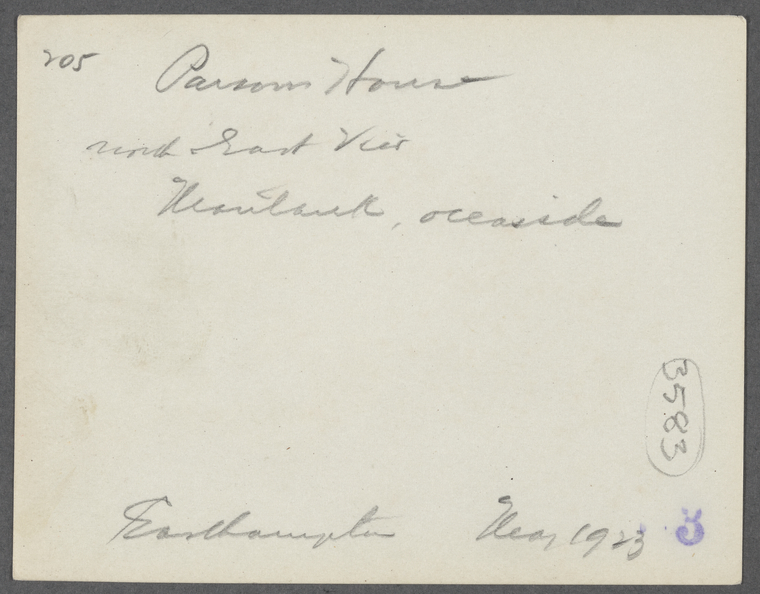 205
Parsons House
north East View
Montauk, oceanside
3583
Easthampton May 1923